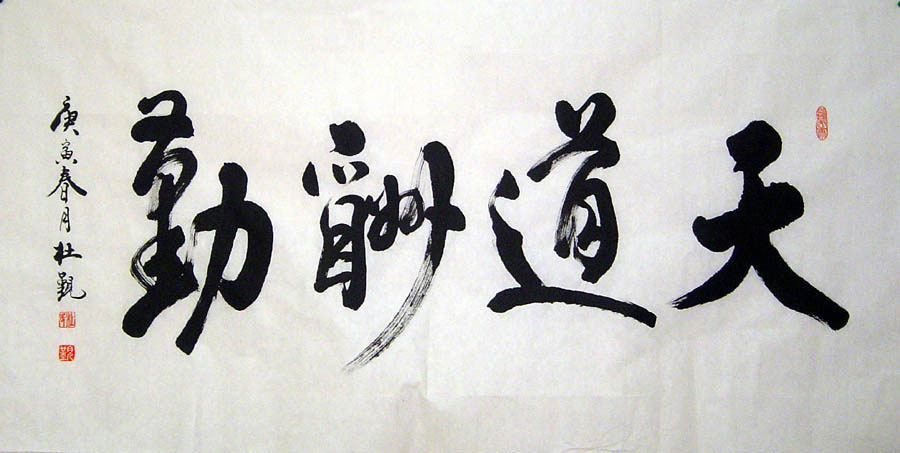 天道酬勤
庚寅春月杜觐